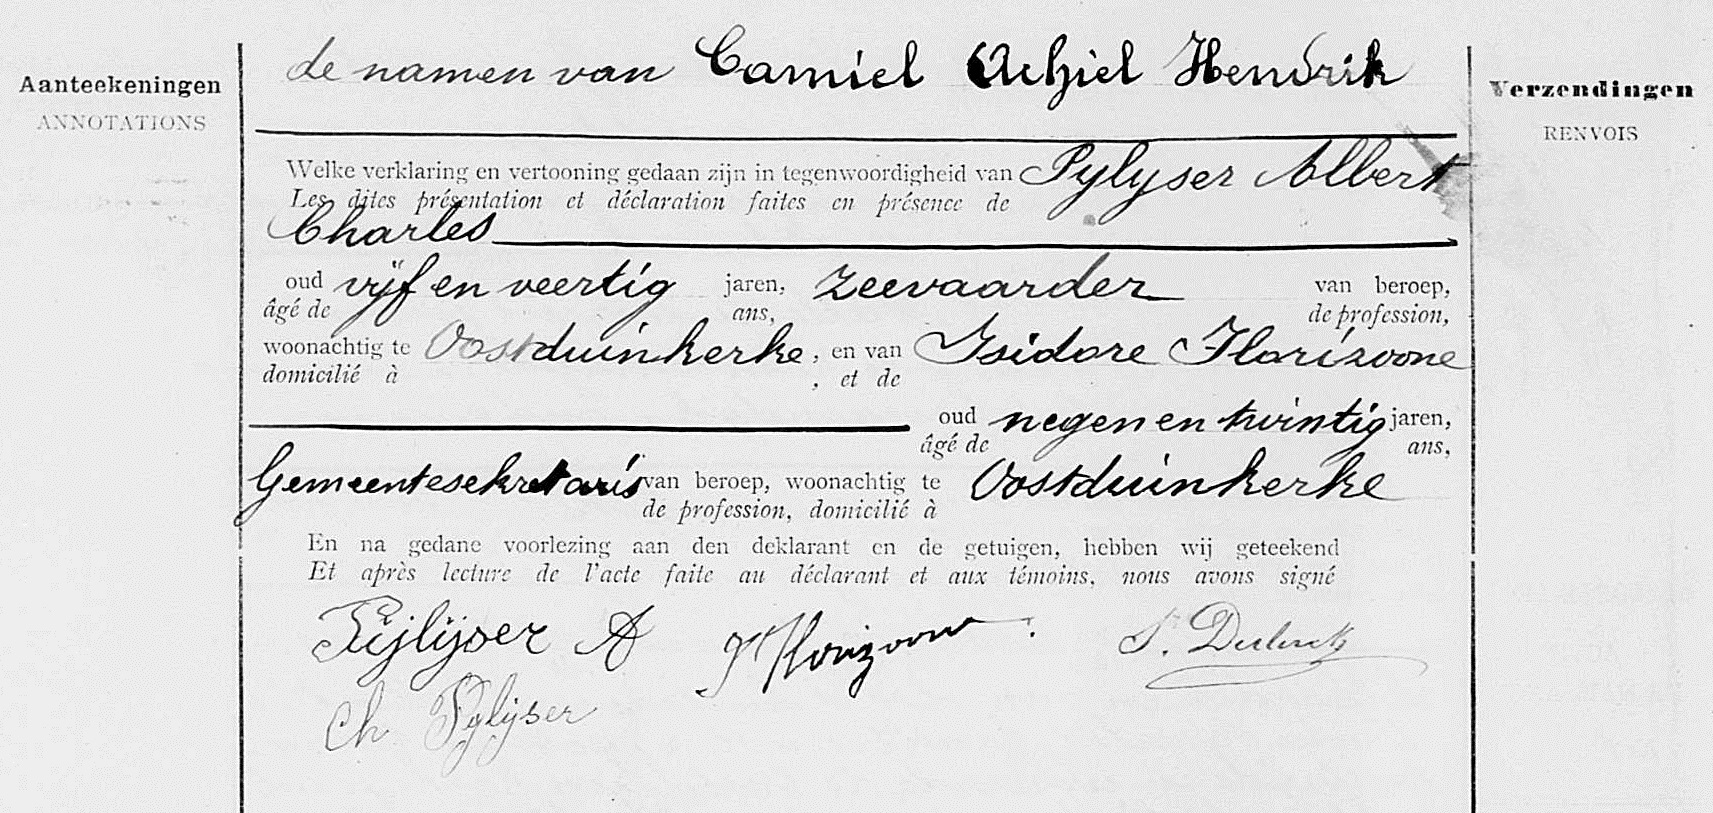 de namen van Camiel Achiel Hendrik
Aanteekeningen
ANNOTATIONS
Verzendingen
RENVOIS
Welke verklaring en vertooning gedaan zijn in tegenwoordigheid van Pylyser Albert
Les dites présentation et déclaration faites en présence de
Charles
oud vijf en veertig jaren, zeevaarder van beroep,
âgé de ans, de profession,
woonachtig te Oostduinkerke, en van Isidore Florizoone
domicilié à , et de
oud negen en twintig jaren,
âgé de ans,
Gemeentesekretaris van beroep, woonachtig te Oostduinkerke
de profession, domicilié à
En na gedane voorlezing aan den deklarant en de getuigen, hebben wij geteekend
Et après lecture de l'acte faite au déclarant et aux témoins, nous avons signé
Pijlijser A Florizoone
Ch Pylijser